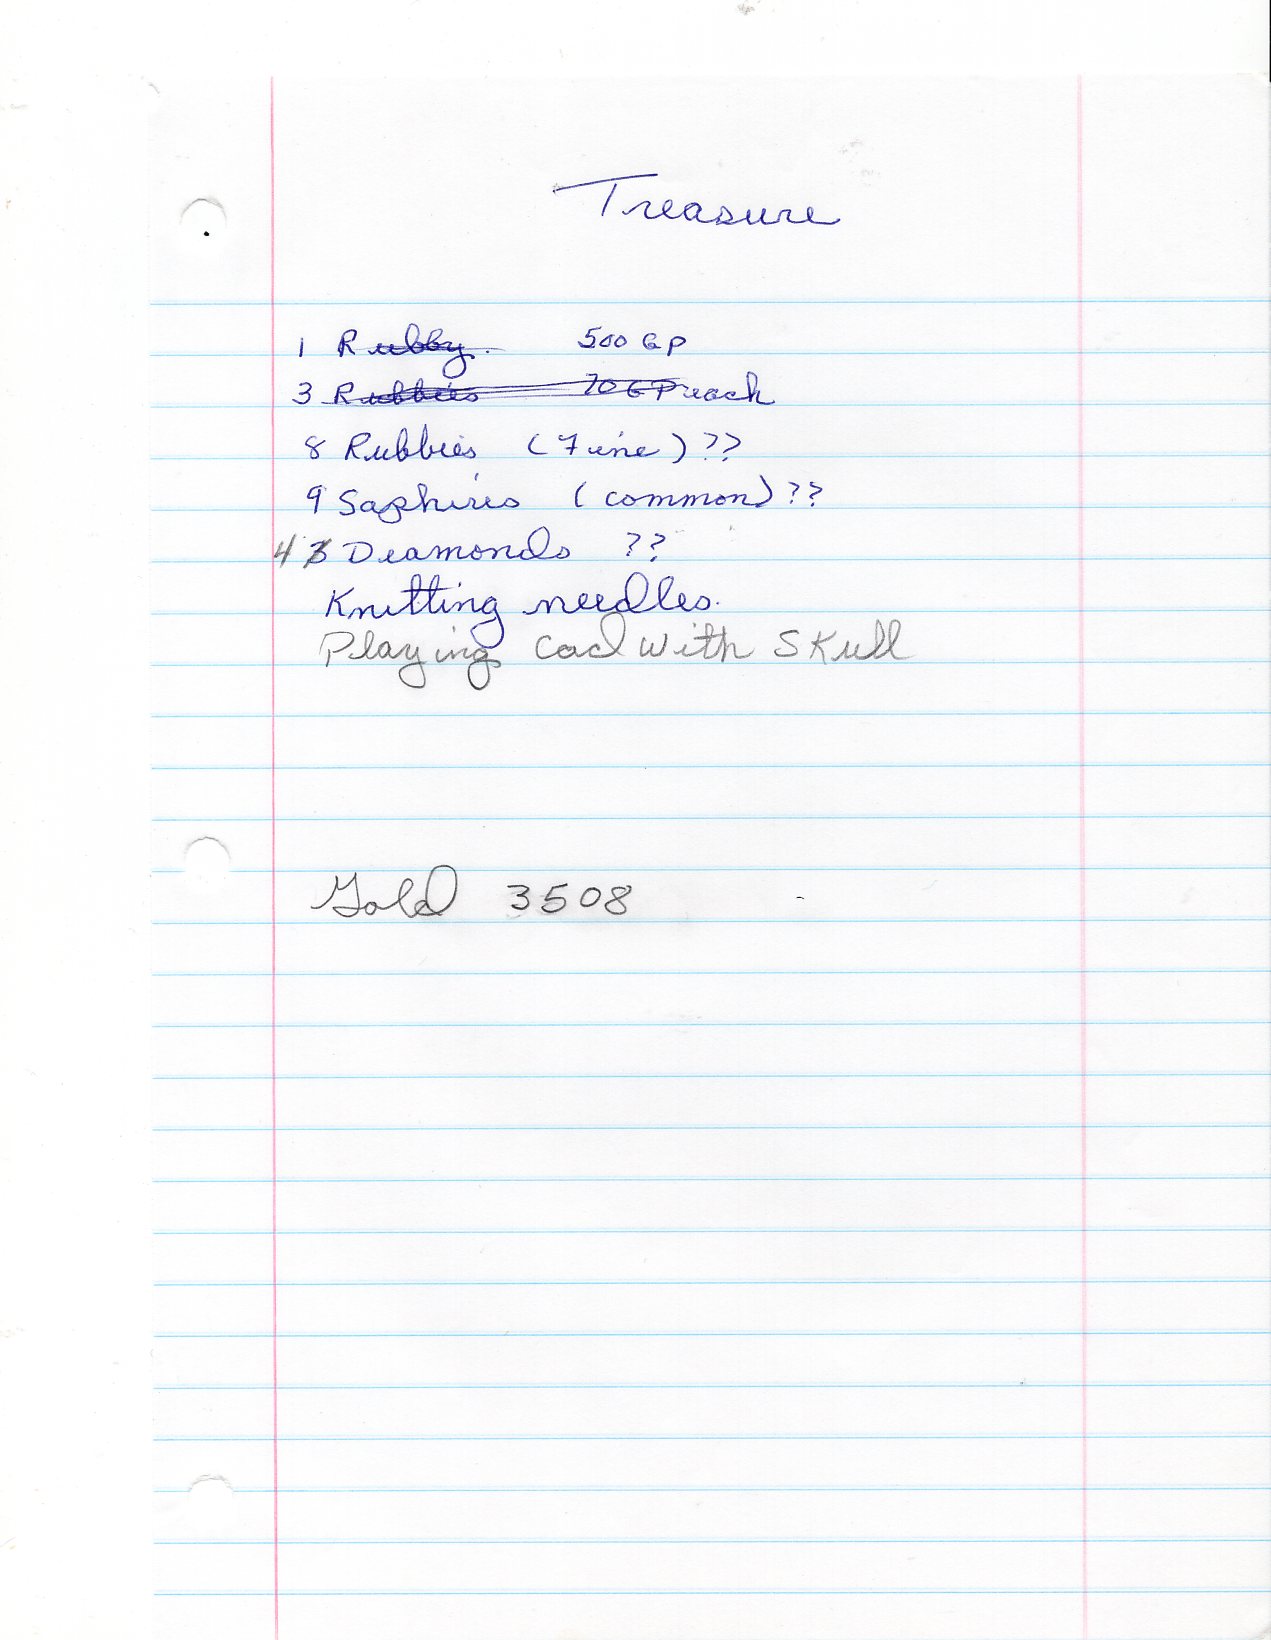 Treasure
1 Rubby. 500 GP
3 Rubbies 70 GP each
8 Rubbies (Fine) ??
9 Saphires (common) ??
4 3 Deamonds ??
Knitting needles.
Playing Cad With Skull
Gold 3508